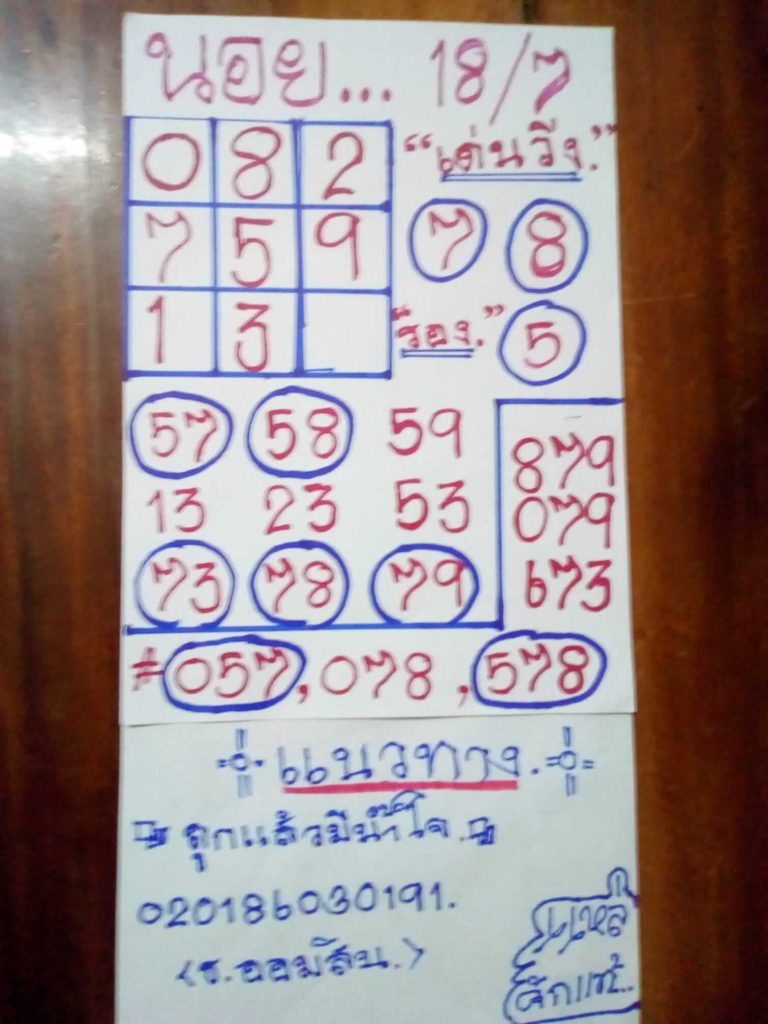 นอย... 18/7
0 8 2 "เด่นวิ่ง."
7 5 9 7 8
1 3 "รอง." 5
57 58 59 879
13 23 53 079
73 78 79 673
≠057, 078, 578
แนวทาง.
ถูกแล้วมีน้ำใจ.
020186030191.
<ธ.ออมสิน.>